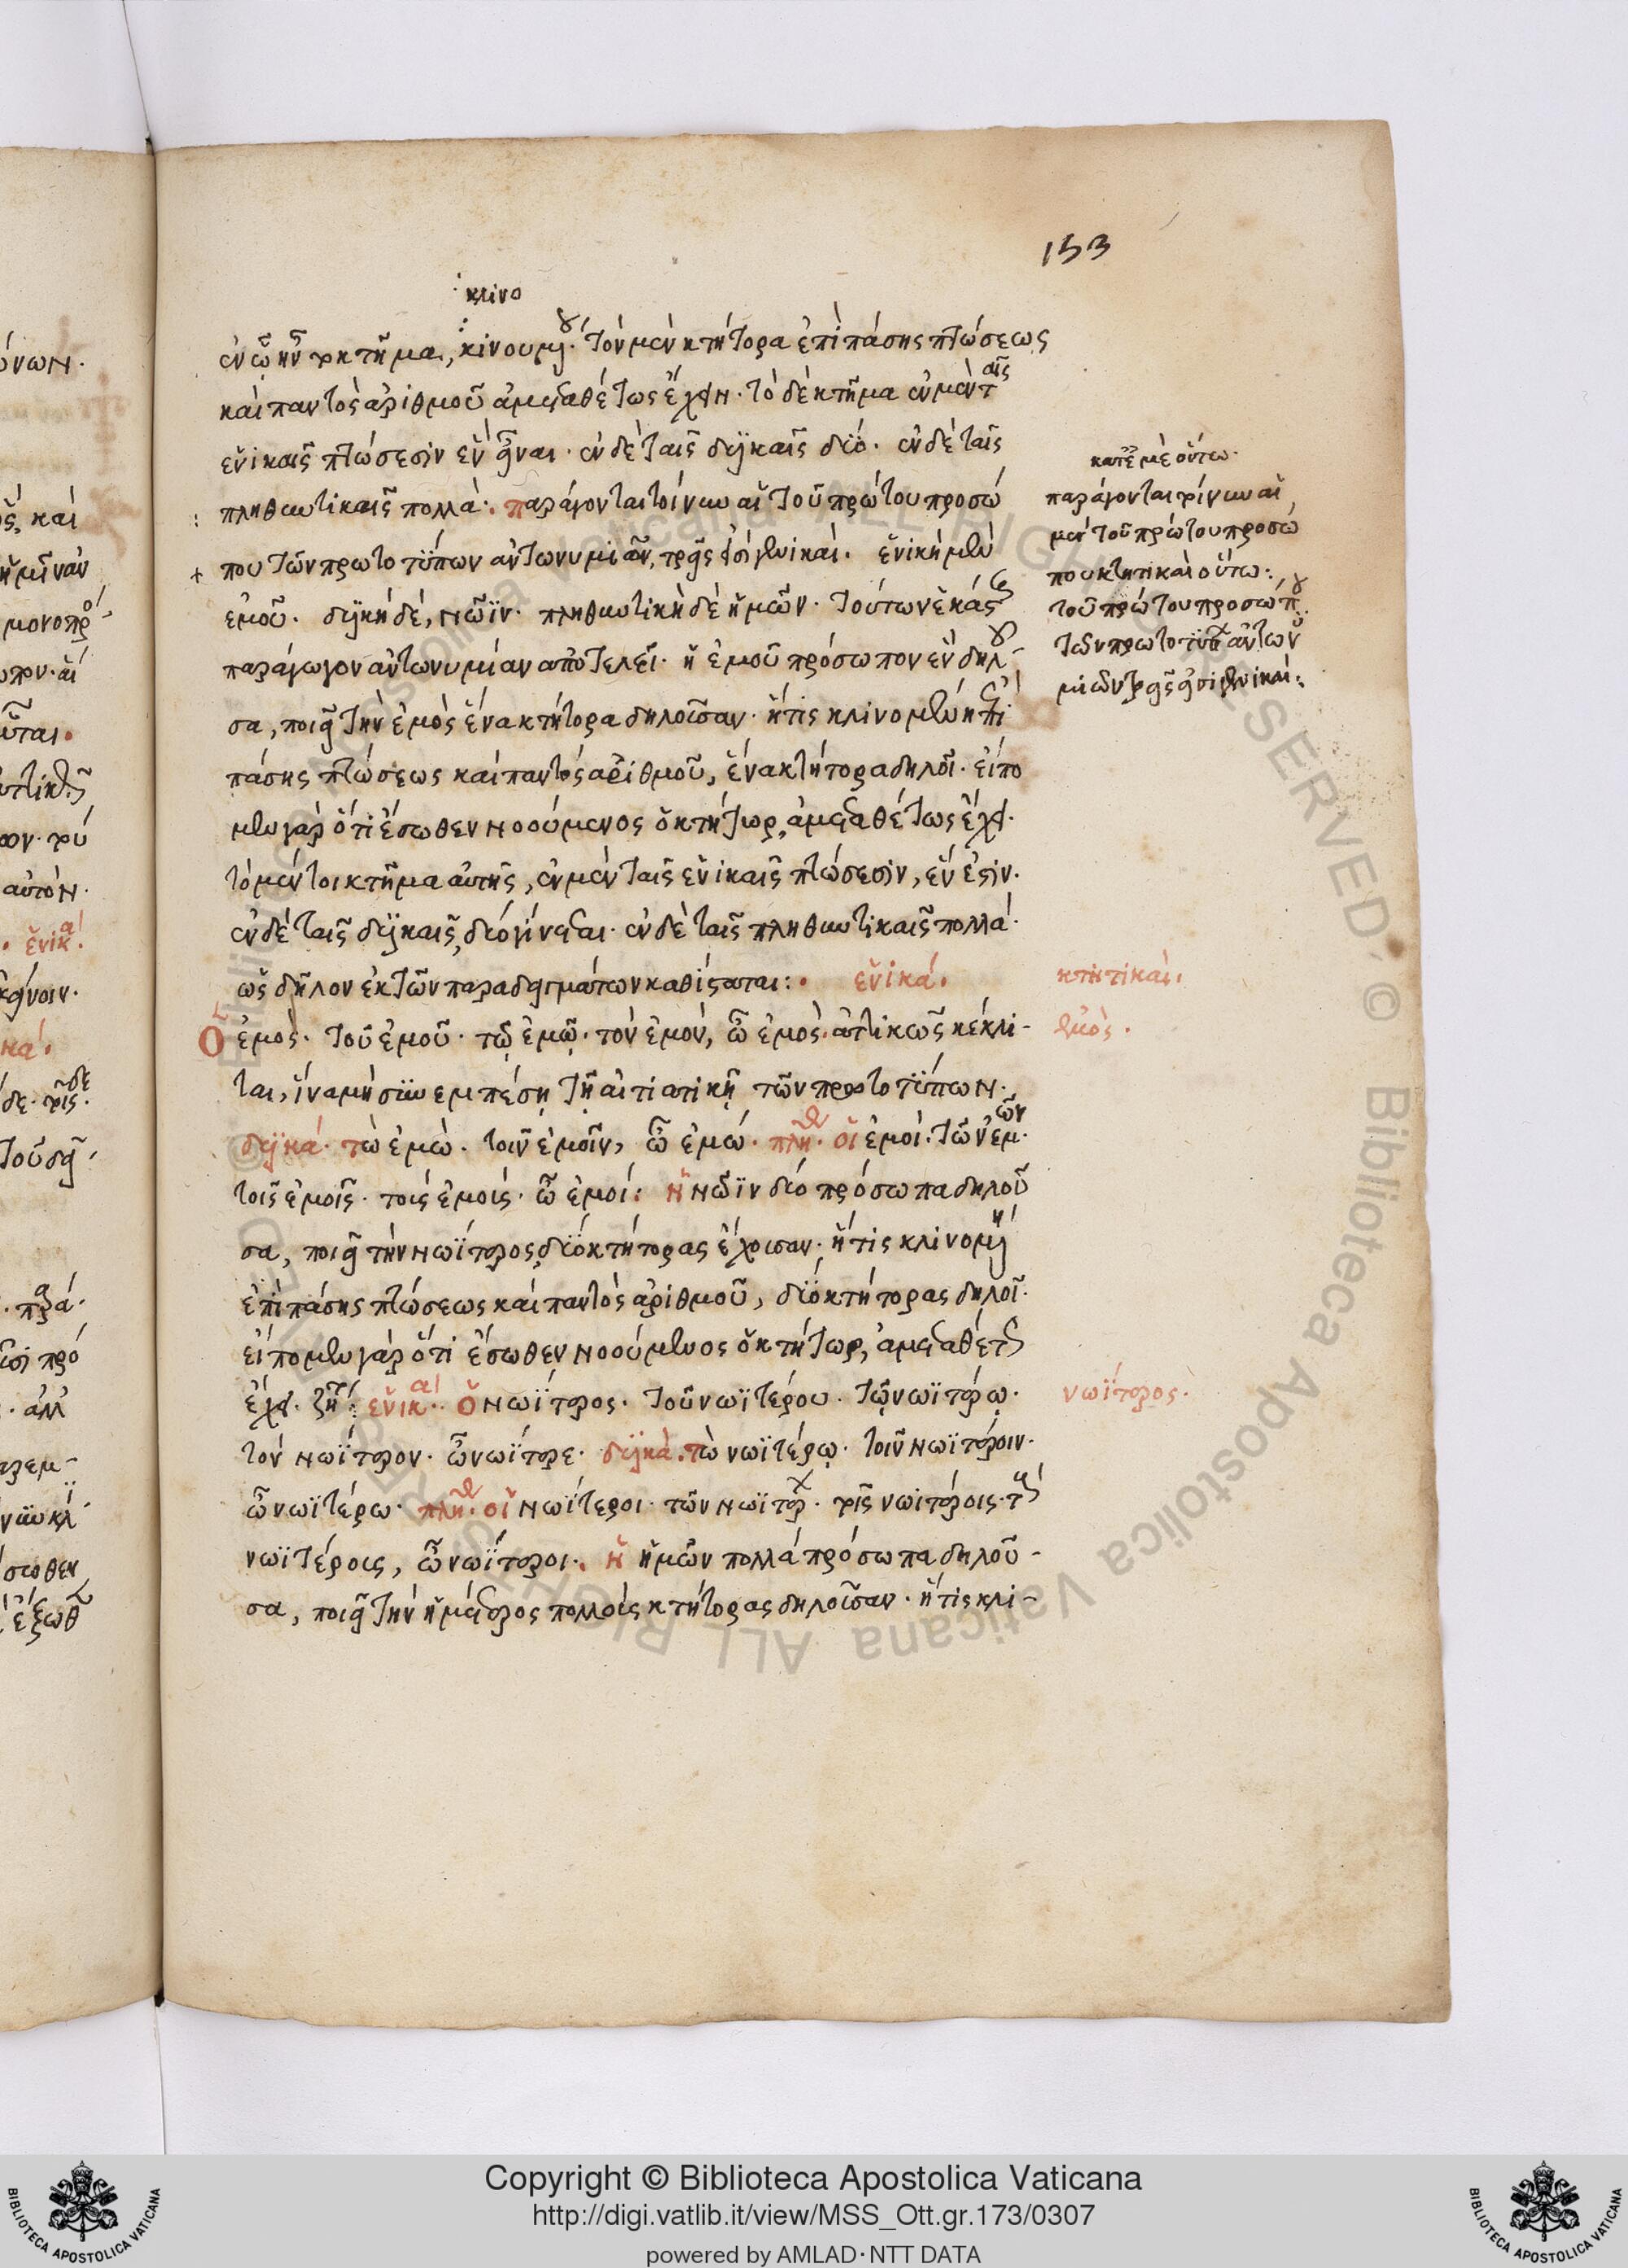 153
κλινο
ἐν ᾧ ἦν τὸ κτῆμα, κινουμένου. τὸν μὲν κτήτορα ἐπὶ πάσης πτώσεως
καὶ παντὸς ἀριθμοῦ ἀμεταθέτως ἔχειν. τὸ δὲ κτῆμα ἐν μὲν ταῖς
ἑνικαῖς πτώσεσιν ἓν εἶναι. ἐν δὲ ταῖς δυϊκαῖς δύο. ἐν δὲ ταῖς
πληθυντικαῖς πολλά. παράγονται τοίνυν αἱ τοῦ πρώτου προσώ
που τῶν πρωτοτύπων ἀντωνυμιῶν, τρεῖς εἰσὶ γενικαί. ἑνικὴ μὲν
ἐμοῦ. δυϊκὴ δέ, νῶϊν. πληθυντικὴ δὲ ἡμῶν. τούτων ἑκάστη
παράγωγον ἀντωνυμίαν ἀποτελεῖ. ἡ ἐμοῦ πρόσωπον ἓν δηλοῦ-
σα, ποιεῖ τὴν ἐμὸς ἕνα κτήτορα δηλοῦσαν. ἥτις κλινομένη ἐπὶ
πάσης πτώσεως καὶ παντὸς ἀριθμοῦ, ἕνα κτήτορα δηλοῖ. εἴπο
μεν γὰρ ὅτι ἔσωθεν νοούμενος ὁ κτήτωρ, ἀμεταθέτως ἔχει.
τὸ μέντοι κτῆμα αὐτῆς, ἐν μὲν ταῖς ἑνικαῖς πτώσεσιν, ἕν ἐστιν.
ἐν δὲ ταῖς δυϊκαῖς, δύο γίνεται. ἐν δὲ ταῖς πληθυντικαῖς πολλά.
ὡς δῆλον ἐκ τῶν παραδειγμάτων καθίσταται: ἑνικά.
Ὁ ἐμὸς. τοῦ ἐμοῦ. τῷ ἐμῷ. τὸν ἐμόν, ὦ ἐμὸς. ἀττικῶς κέκλι-
ται, ἵνα μὴ συνεμπέσῃ τῇ αἰτιατικῇ τῶν πρωτοτύπων.
δυϊκά. τὼ ἐμὼ. τοῖν ἐμοῖν, ὦ ἐμώ. πληθ. οἱ ἐμοὶ. τῶν ἐμῶν.
τοῖς ἐμοῖς. τοὺς ἐμούς. ὦ ἐμοί: ἡ νῶϊν δύο πρόσωπα δηλοῦ
σα, ποιεῖ τὴν νωΐτερος, δύο κτήτορας ἔχουσαν. ἥτις κλινομένη
ἐπὶ πάσης πτώσεως καὶ παντὸς ἀριθμοῦ, δύο κτήτορας δηλοῖ.
εἴπομεν γὰρ ὅτι ἔσωθεν νοούμενος ὁ κτήτωρ, ἀμεταθέτως
ἔχει. ζήτ: ἑνικά. ὁ νωΐτερος. τοῦ νωϊτέρου. τῷ νωϊτέρῳ.
τὸν νωΐτερον. ὦ νωΐτερε. δυϊκὰ. τὼ νωϊτέρω. τοῖν νωϊτέροιν.
ὦ νωϊτέρω. πληθ. οἱ νωΐτεροι. τῶν νωϊτέρων. τοῖς νωϊτέροις. τοὺς
νωϊτέρους, ὦ νωΐτεροι. ἡ ἡμῶν πολλὰ πρόσωπα δηλοῦ-
σα, ποιεῖ τὴν ἡμέτερος πολλοὺς κτήτορας δηλοῦσαν. ἥτις κλι-
κατ' ἐμὲ οὕτω.
παράγονται τοίνυν αἱ
μὲν τοῦ πρώτου προσώ
που κτητικαὶ οὕτω:
τοῦ πρώτου προσώπου
τῶν πρωτοτύπων ἀντωνυ
μιῶν τρεῖς εἰσὶ γενικαί:
κτητικαί.
ἐμὸς.
νωΐτερος.
Copyright © Biblioteca Apostolica Vaticana
http://digi.vatlib.it/view/MSS_Ott.gr.173/0307
powered by AMLAD·NTT DATA